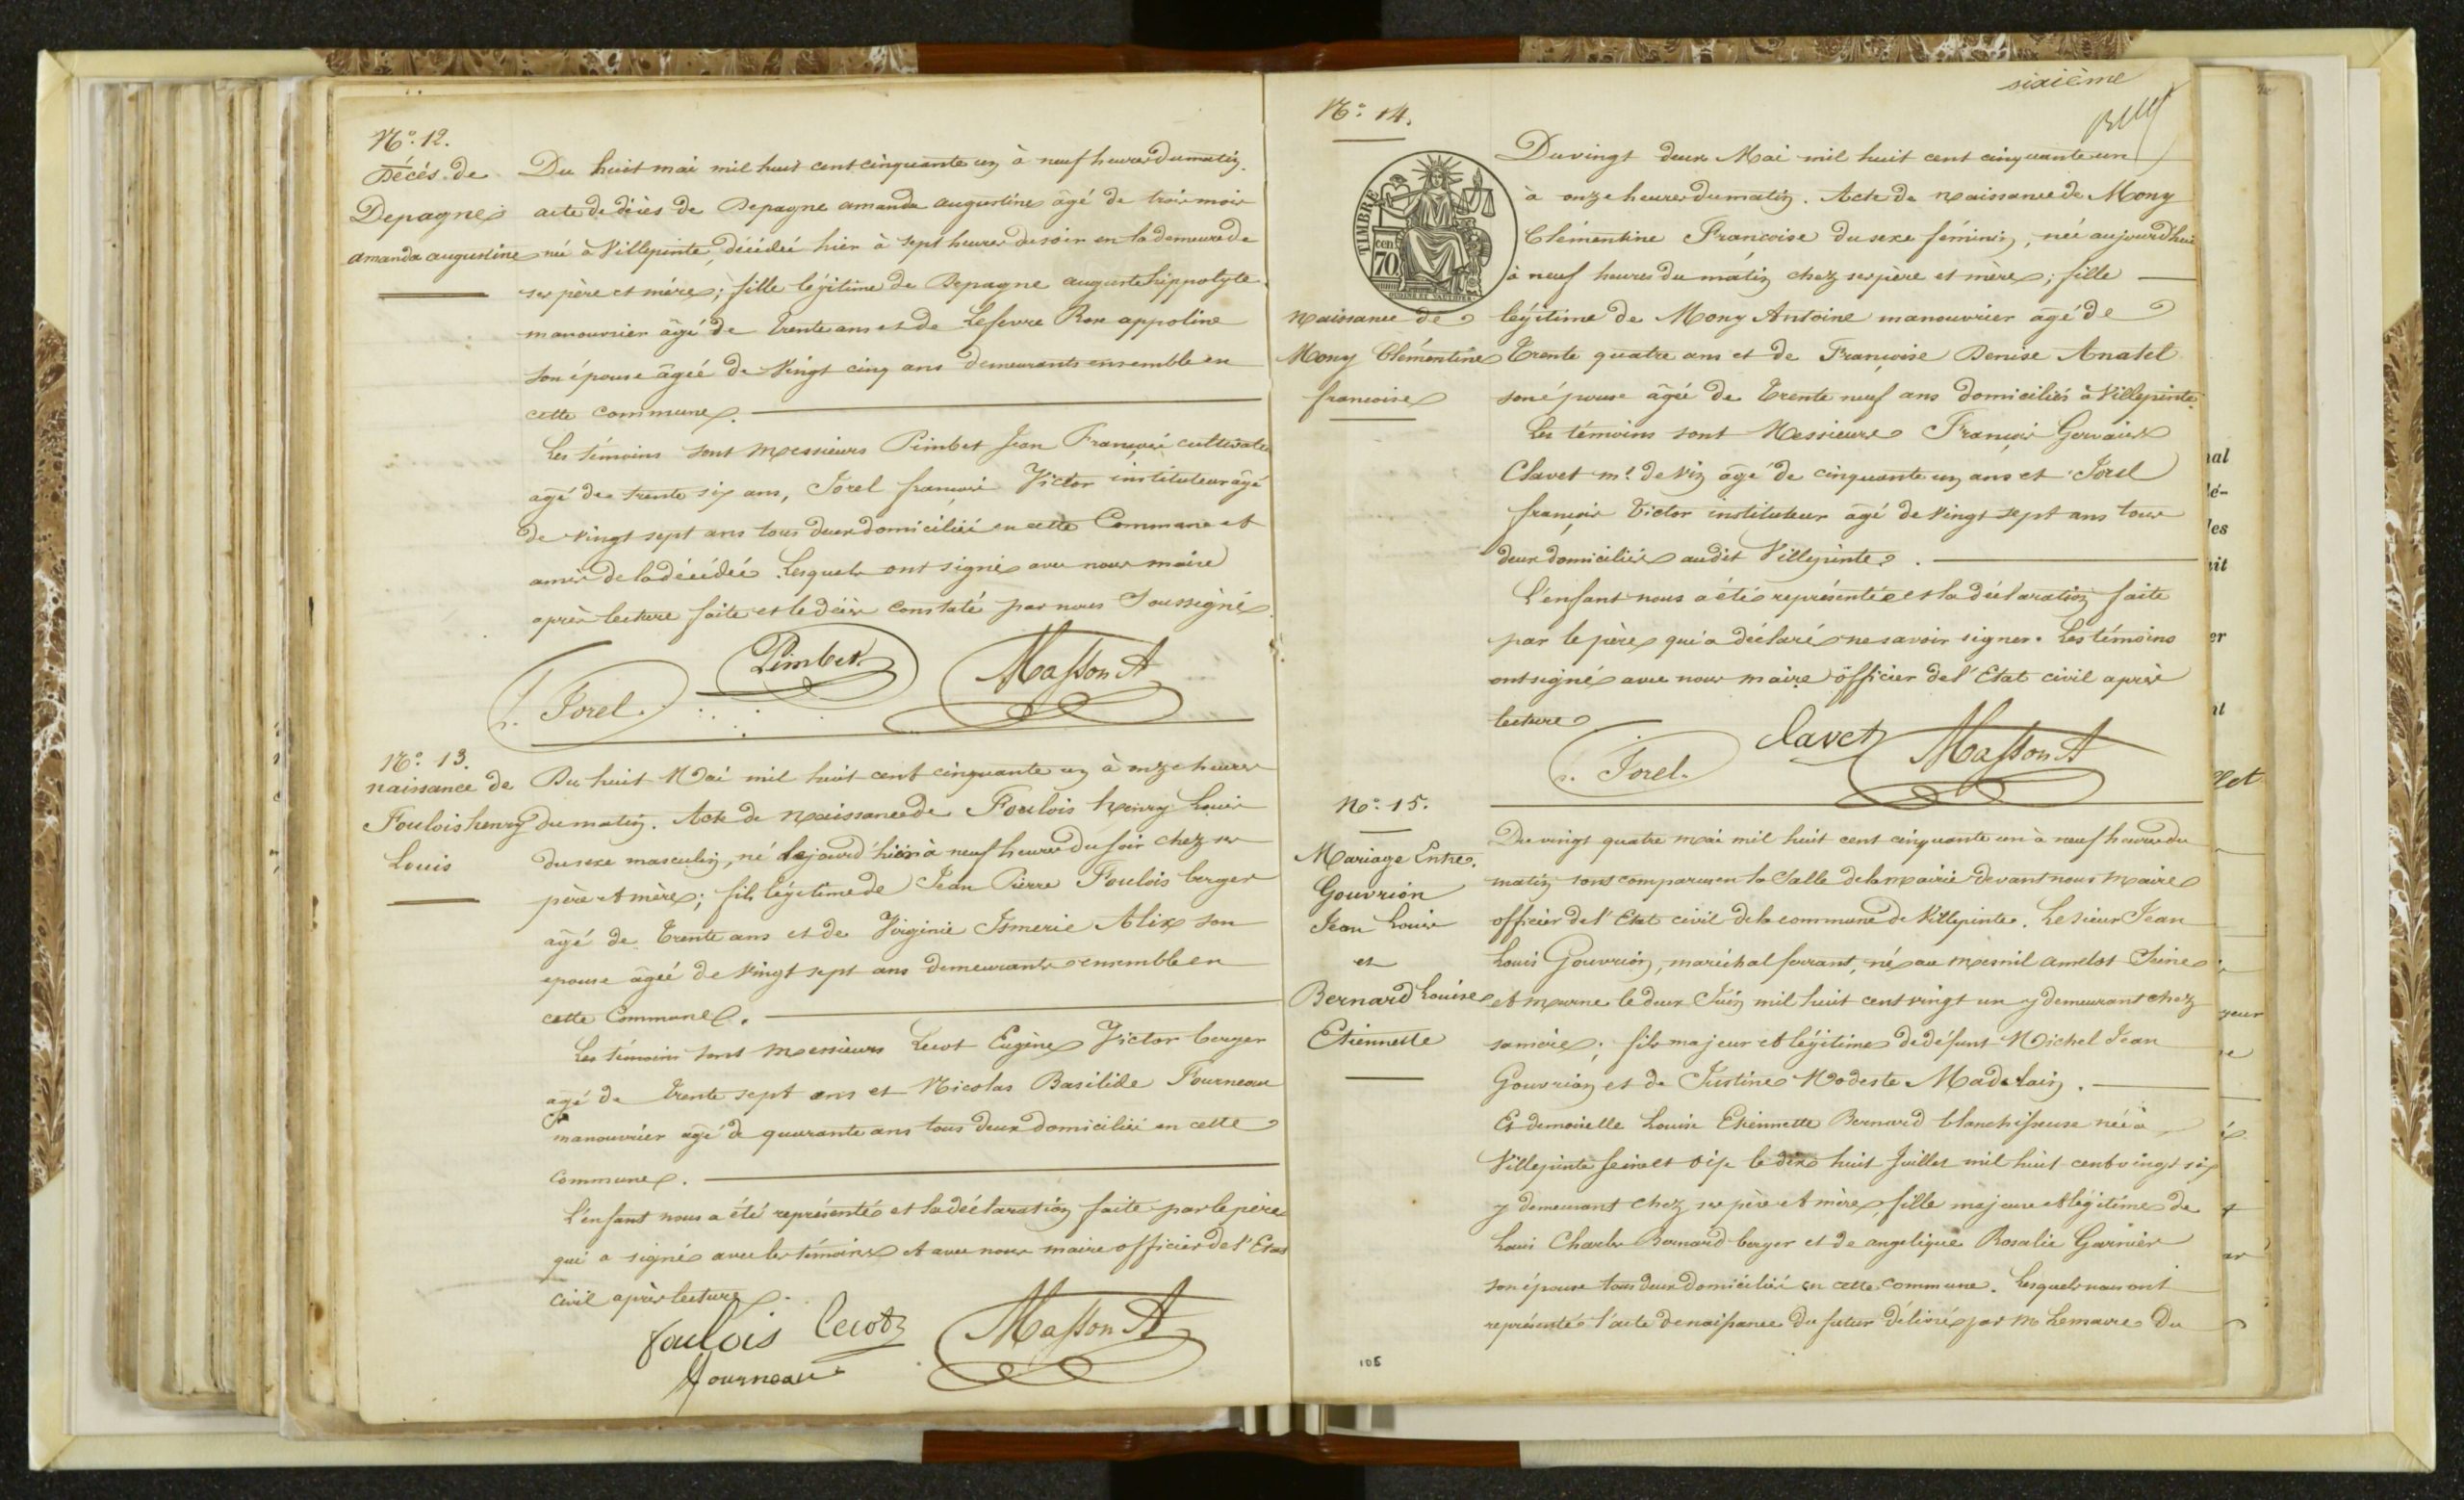 N.° 12.
Décès de
Depagne
amanda augustine
Du huit mai mil huit cent cinquante un à neuf heures du matin.
acte de décès de Depagne amanda augustine âgé de trois mois
né à Villepinte, décédée hier à sept heures du soir en la demeure de
ses père et mère; fille légitime de Depagne auguste hippolyte
manouvrier âgé de trente ans et de Lefevre Rose appoline
son épouse âgée de vingt cinq ans demeurants ensemble en
cette commune.
Les témoins sont Messieurs Pimbet Jean François cultivateur
âgé de trente six ans, Jorel francois Victor instituteur âgé
de vingt sept ans tous deux domiciliés en cette Commune et
amis de la décédée. Lesquels ont signé avec nous maire
après lecture faite et le décès constaté par nous Soussigné.
Jorel. Pimbet Masson A
N.° 13.
naissance de
Foulois henry
Louis
Du huit Mai mil huit cent cinquante un à onze heures
du matin. Acte de Naissance de Foulois henry Louis
du sexe masculin, né hier à neuf heures du soir chez ses
père et mère; fils légitime de Jean Pierre Foulois berger
âgé de trente ans et de Virginie Ismerie Alix son
epouse âgée de vingt sept ans demeurants ensemble en
cette Commune.
Les témoins sont Messieurs Lecot Eugène Victor berger
âgé de trente sept ans et Nicolas Basilide Fourneau
manouvrier âgé de quarante ans tous deux domiciliés en cette
commune.
L'enfant nous a été représenté et la déclaration faite par le père
qui a signé avec les témoins et avec nous maire officier de l'Etat
civil après lecture.
foulois Lecot Masson A
fourneau
sixième
N.° 14.
TIMBRE
70 cent
Naissance de
Mony Clémentine
francoise
Du vingt deux Mai mil huit cent cinquante un
à onze heures du matin. Acte de Naissance de Mony
Clémentine Francoise du sexe féminin, née aujourd'hui
à neuf heures du matin chez ses père et mère; fille
légitime de Mony Antoine manouvrier âgé de
trente quatre ans et de Françoise Denise Anatel
son épouse âgée de trente neuf ans domiciliés à Villepinte.
Les témoins sont Messieurs François Gervais
Clavet m.d de vin âgé de cinquante un ans et Jorel
françois Victor instituteur âgé de vingt sept ans tous
deux domiciliés audit Villepinte.
L'enfant nous a été représentée et la déclaration faite
par le père qui a déclaré ne savoir signer. Les témoins
ont signé avec nous maire officier de l'Etat civil après
lecture
Jorel. Clavet Masson A
N.° 15.
Mariage Entre
Gouvrion
Jean Louis
et
Bernard Louise
Etiennette
Du vingt quatre mai mil huit cent cinquante un à neuf heures du
matin sont comparus en la Salle de la Mairie devant nous Maire
officier de l'Etat civil de la commune de Villepinte. Le sieur Jean
Louis Gouvrion, maréchal ferrant, né au Mesnil amelot Seine
et Marne le deux Juin mil huit cent vingt un y demeurant chez
sa mère; fils majeur et légitime de défunt Michel Jean
Gouvrion et de Justine Modeste Madelain.
Et demoiselle Louise Etiennette Bernard blanchisseuse née à
Villepinte Seine et Oise le dix huit Juillet mil huit cent vingt six
y demeurant chez ses père et mère, fille majeure et légitime de
Louis Charles Bernard berger et de angelique Rosalie Garnier
son épouse tous deux domiciliés en cette commune. Lesquels nous ont
représenté l'acte de naissance du futur délivré par M Lemaire du
106